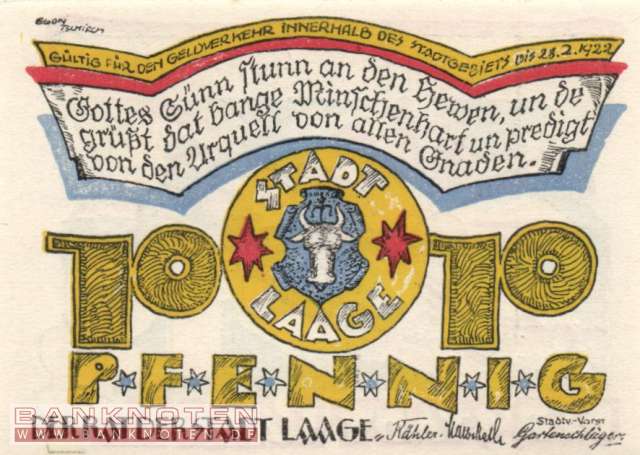 EGON
TSCHIRCH
GÜLTIG FÜR DEN GELDVERKEHR INNERHALB DES STADTGEBIETS BIS 28.2.1922
Gottes Sünn stunn an den Hewen, un de
grüßt dat bange Minschenhart un predigt
von den Urquell von allen Gnaden.
STADT
LAAGE
10 10
P·F·E·N·N·I·G
BANKNOTEN
WWW.BANKNOTEN.DE
DER RAT DER STADT LAAGE
Kähler
Stadtv.-Vorst
Gartenschläger